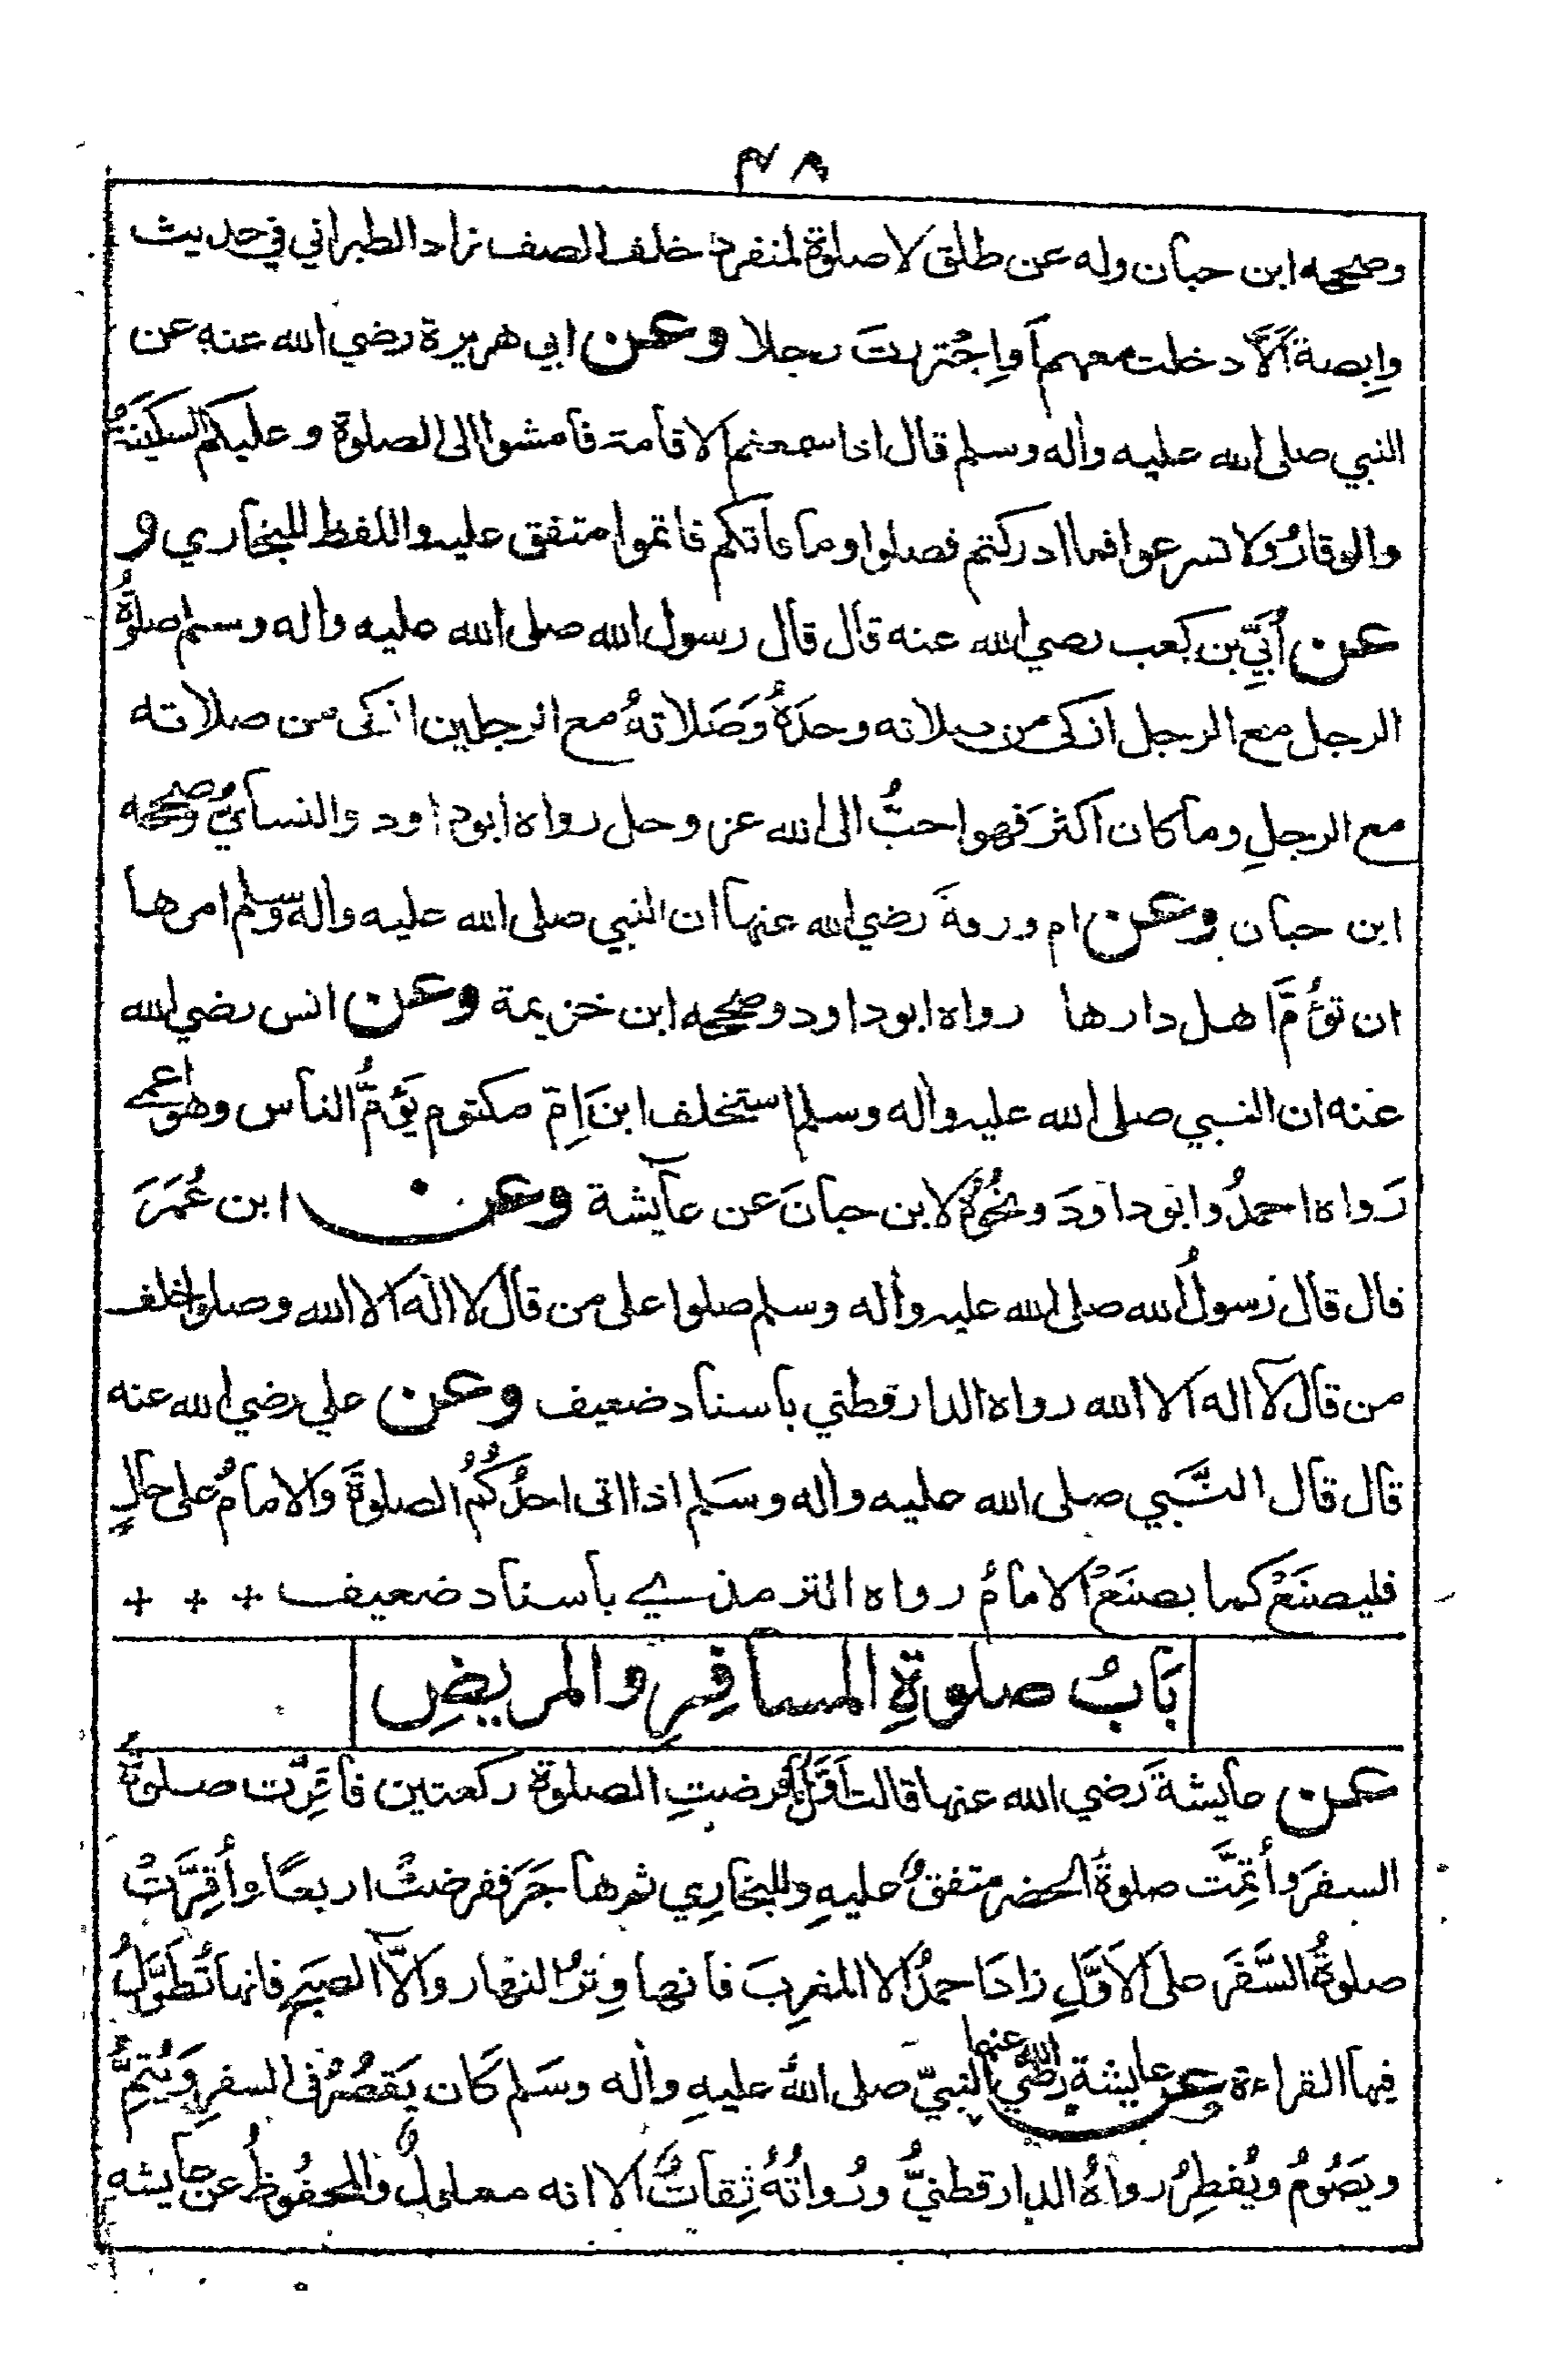 ٤٨
وصححه ابن حبان وله عن طلق لا صلوة لمنفرد خلف الصف زاد الطبراني في حديث
وابِصة ألَّا دخلت معهم اَواِجْتررتَ رجلا وعن ابي هريرة رضي الله عنه عن
النبي صلى الله عليه واله وسلم قال اذا سمعتم الاقامة فامشوا الى الصلوة وعليكم السكينَةُ
والوقارُ ولا تسرعوا فما ادركتم فصلوا وما فاتكم فاتموا متفق عليه واللفظ للبخاري و
عن أُبَيِّ بن كعب رضي الله عنه قال قال رسول الله صلى الله عليه واله وسلم صلوةُ
الرجل مع الرجل ازكى من صلاته وحدَهُ وَصَلاتهُ مع الرجلين ازكى من صلاته
مع الرجلِ وما كان اكثرَ فهو احبُّ الى الله عز وجل رواه ابوداود والنسائيُّ وصححه
ابن حبان وعن ام ورقةَ رضي الله عنها ان النبي صلى الله عليه واله وسلم امرها
ان تؤُمَّ اهل دارها رواه ابوداود وصححه ابن خزيمة وعن انس رضي الله
عنه ان النبي صلى الله عليه واله وسلم استخلف ابنَ اِمّ مكتوم يَؤمُّ الناس وهو اعمى
رَواه احمدُ وابوداودَ ونحُوهُ لابن حبانَ عن عآيشة وعن ابن عُمَرَ
قال قال رَسولُ الله صلى الله عليه واله وسلم صلوا على من قال لا اله الا الله وصلوا خلف
من قال لآ اله الا الله رواه الدارقطني باسناد ضعيف وعن علي رضي الله عنه
قال قال النَّبي صلى الله عليه واله وسَلم اذا اتى احدُكُمُ الصلوةَ والامامُ على حالٍ
فليصنَعْ كما يصنَعُ الامامُ رواه الترمذي باسناد ضعيف + + +
بَابُ صلوةِ المسافِرِ والمريضِ
عن عايشةَ رَضي الله عنها قالت اَوَّلُ ما فرضتِ الصلوة ركعتين فاُقِرَّت صلوةُ
السفرَ وأُتمِّت صلوةُ الحضر متفقٌ عليهِ وللبخارِي ثم هاجَرَ ففرضتْ اربعًا واُقِرَّتْ
صلوةُ السَّفَرَ على الاَوَّلِ زادَ احمدُ الا المغرِبَ فانها وِترُ النهار والَّا الصبح فانها تُطَوَّلُ
فيها القراءة وعن عايشة رضي الله عنها النبيّ صلى اللهُ عليهِ واله وسَلم كَان يَقصُرُ فى السفرِ وَيُتِمُّ
ويَصُومُ ويُفطِرُ رواهُ الدارقطنيُّ ورُواتُهُ ثِقاتٌ الا انه معلولٌ والمحفُوظُ عن عايشه